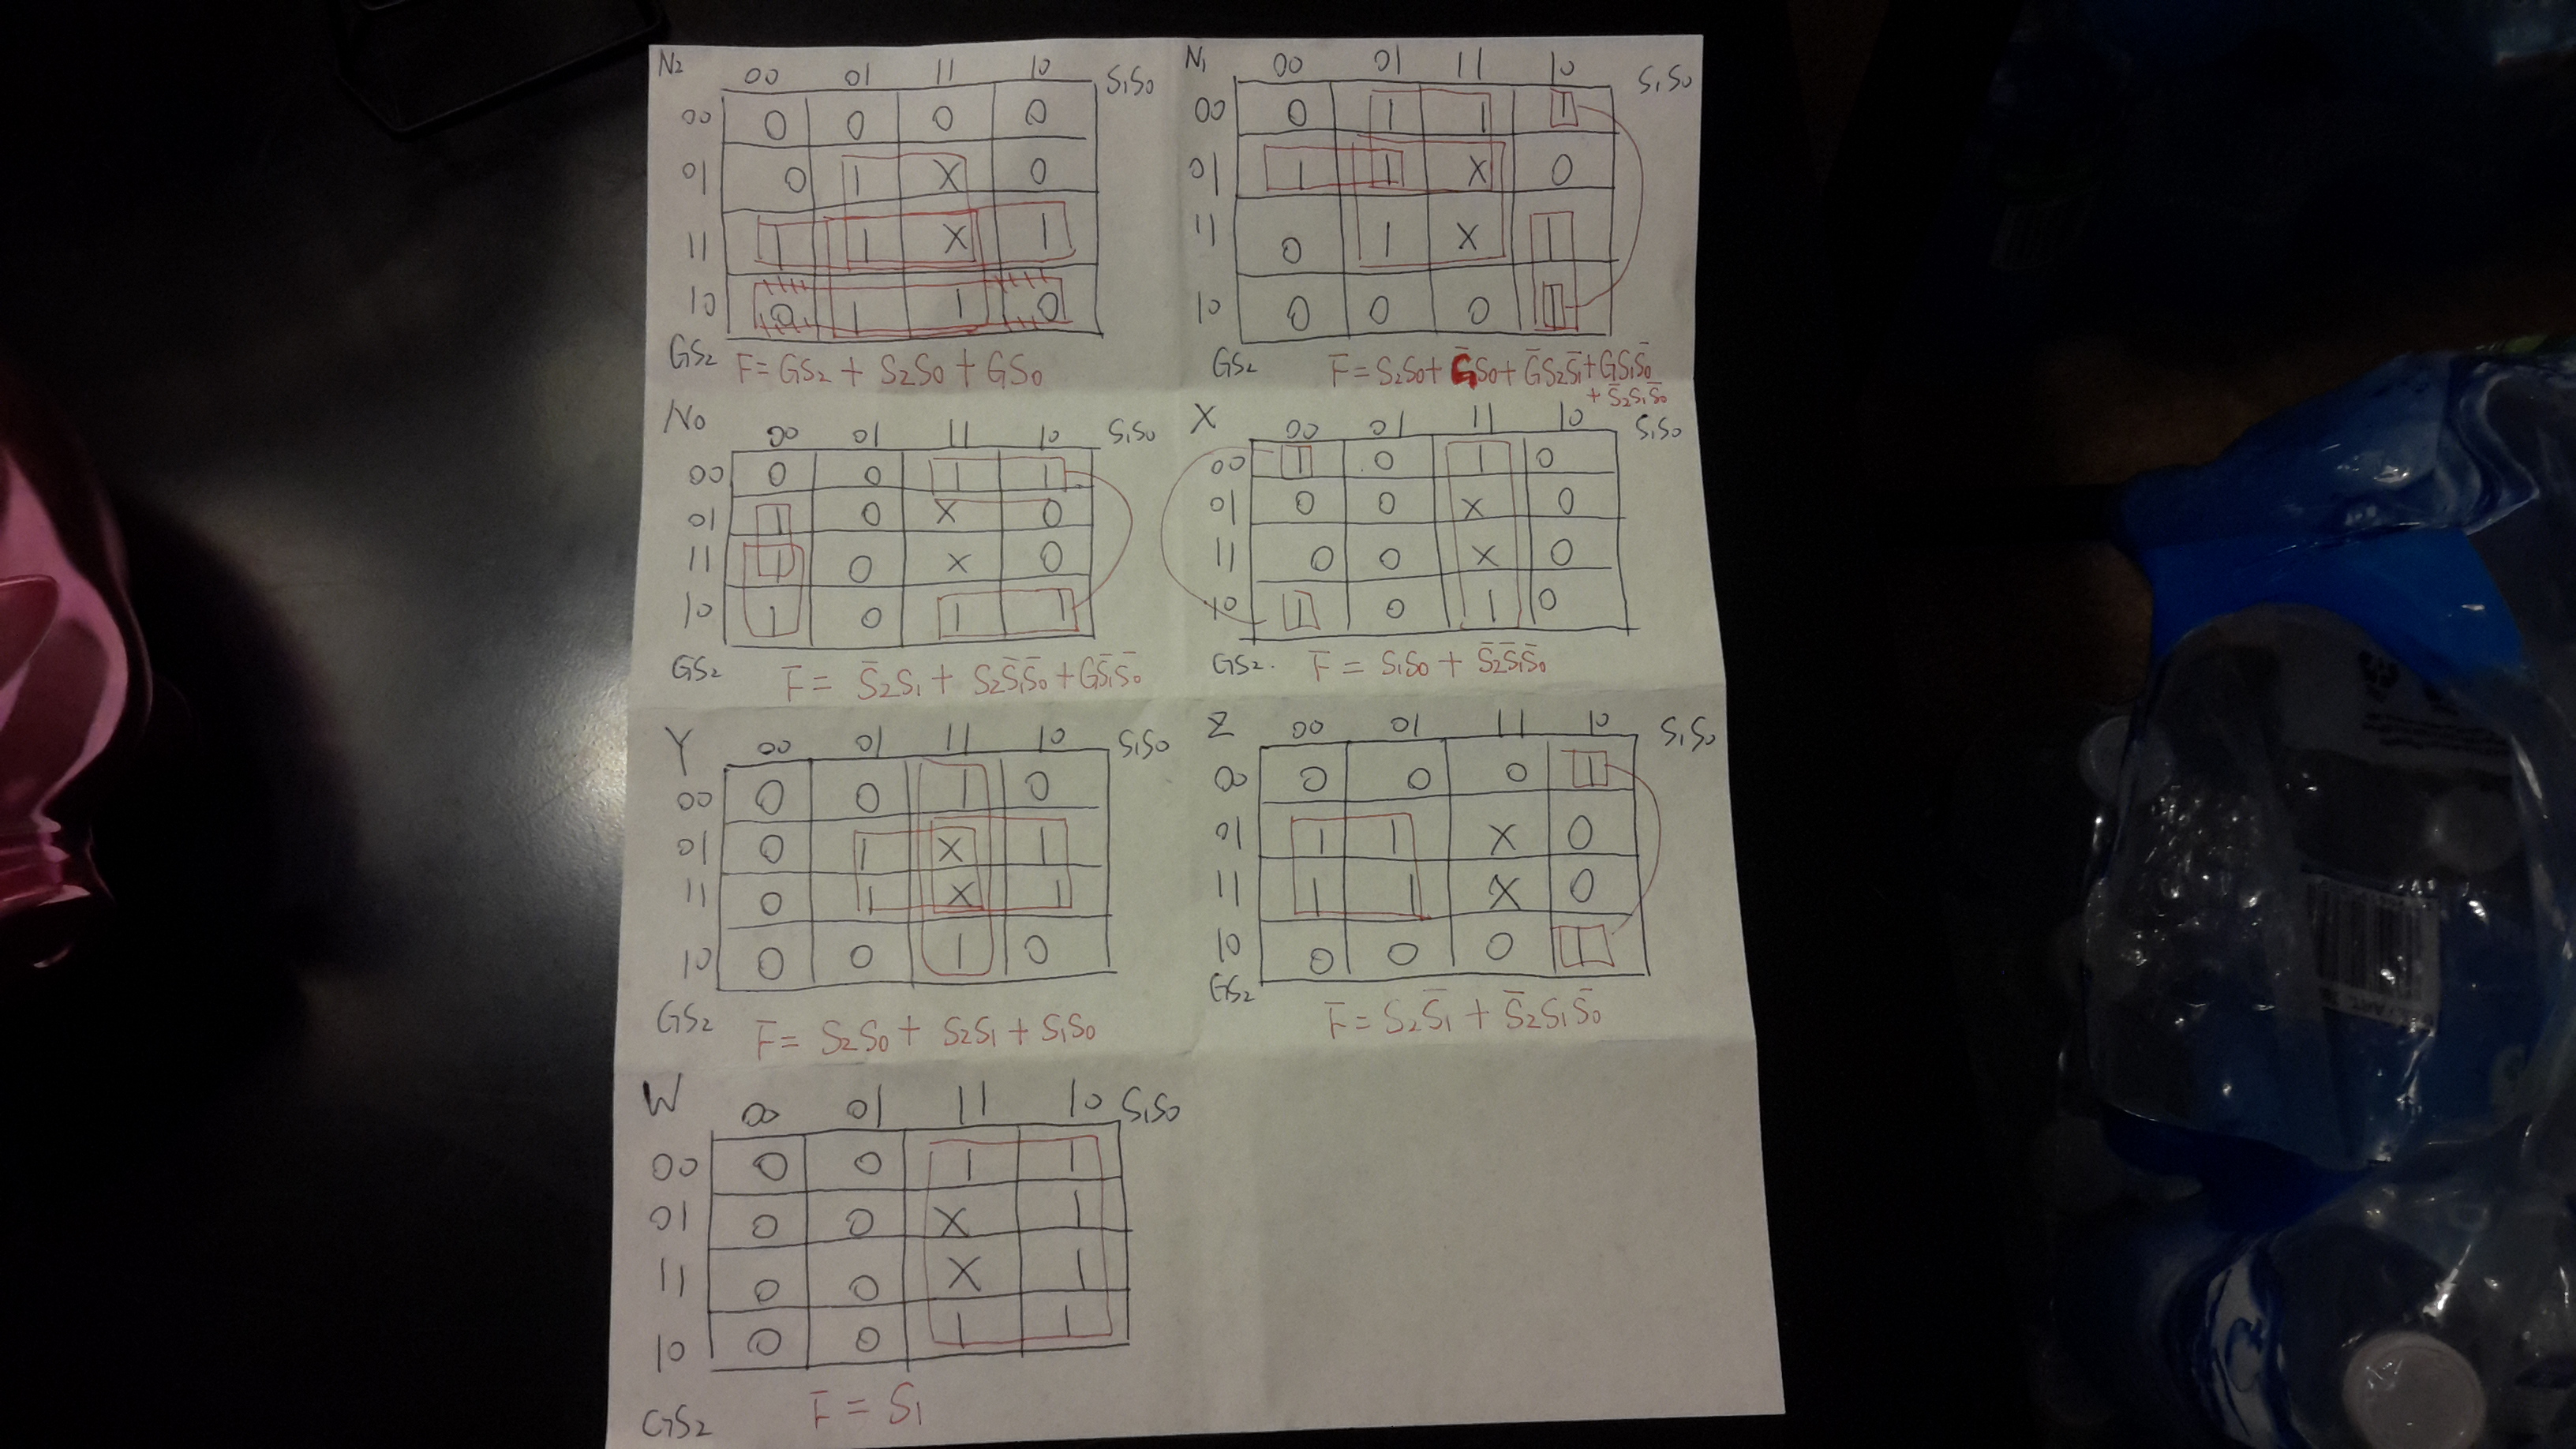 N2 00 01 11 10 S1S0
00 0 0 0 0
01 0 1 X 0
11 1 1 X 1
10 0 1 1 0
GS2 F = GS2 + S2S0 + GS0
N1 00 01 11 10 S1S0
00 0 1 1 1
01 1 1 X 0
11 0 1 X 1
10 0 0 0 1
GS2 F = S2S0 + G̅S0 + G̅S2S̅1 + GS1S̅0
+ S̅2S1S̅0
N0 00 01 11 10 S1S0
00 0 0 1 1
01 1 0 X 0
11 1 0 X 0
10 1 0 1 1
GS2 F = S̅2S1 + S2S̅1S̅0 + GS̅1S̅0
X 00 01 11 10 S1S0
00 1 0 1 0
01 0 0 X 0
11 0 0 X 0
10 1 0 1 0
GS2. F = S1S0 + S̅2S̅1S̅0
Y 00 01 11 10 S1S0
00 0 0 1 0
01 0 1 X 1
11 0 1 X 1
10 0 0 1 0
GS2 F = S2S0 + S2S1 + S1S0
Z 00 01 11 10 S1S0
00 0 0 0 1
01 1 1 X 0
11 1 1 X 0
10 0 0 0 1
GS2 F = S2S̅1 + S̅2S1S̅0
W 00 01 11 10 S1S0
00 0 0 1 1
01 0 0 X 1
11 0 0 X 1
10 0 0 1 1
GS2 F = S1